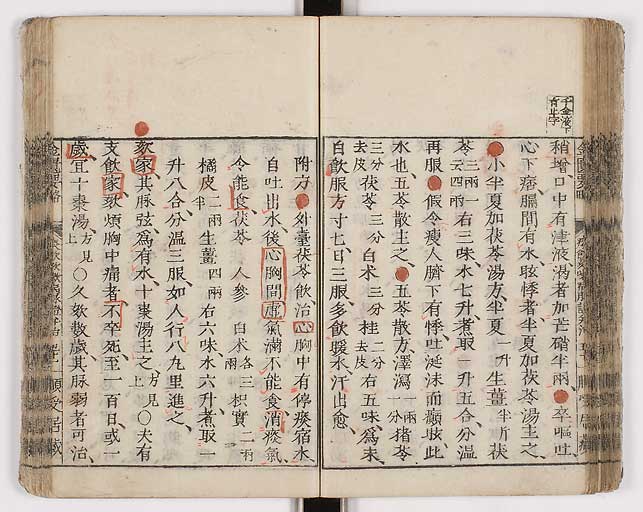 千金液下
有止字
稍增口中有津液渴者加芒硝半兩卒嘔吐
心下痞膈間有水眩悸者半夏加茯苓湯主之
小半夏加茯苓湯方半夏一升生薑半斤茯
苓三兩一云四兩右三味水七升煮取一升五合分溫
再服假令瘦人臍下有悸吐涎沫而癲眩此
水也五苓散主之五苓散方澤瀉一分猪苓
三分去皮茯苓三分白朮三分桂二分去皮右五味為末
白飲服方寸七日三服多飲暖水汗出愈
附方外臺茯苓飲治心胸中有停痰宿水
自吐出水後心胸間虛氣滿不能食消痰氣
令能食茯苓人參白朮各三兩枳實二兩
橘皮二兩半生薑四兩右六味水六升煮取一
升八合分溫三服如人行八九里進之
欬家其脉弦為有水十棗湯主之方見上〇夫有
支飲家欬煩胸中痛者不卒死至一百日或一
歲宜十棗湯方見上〇久欬數歲其脉弱者可治